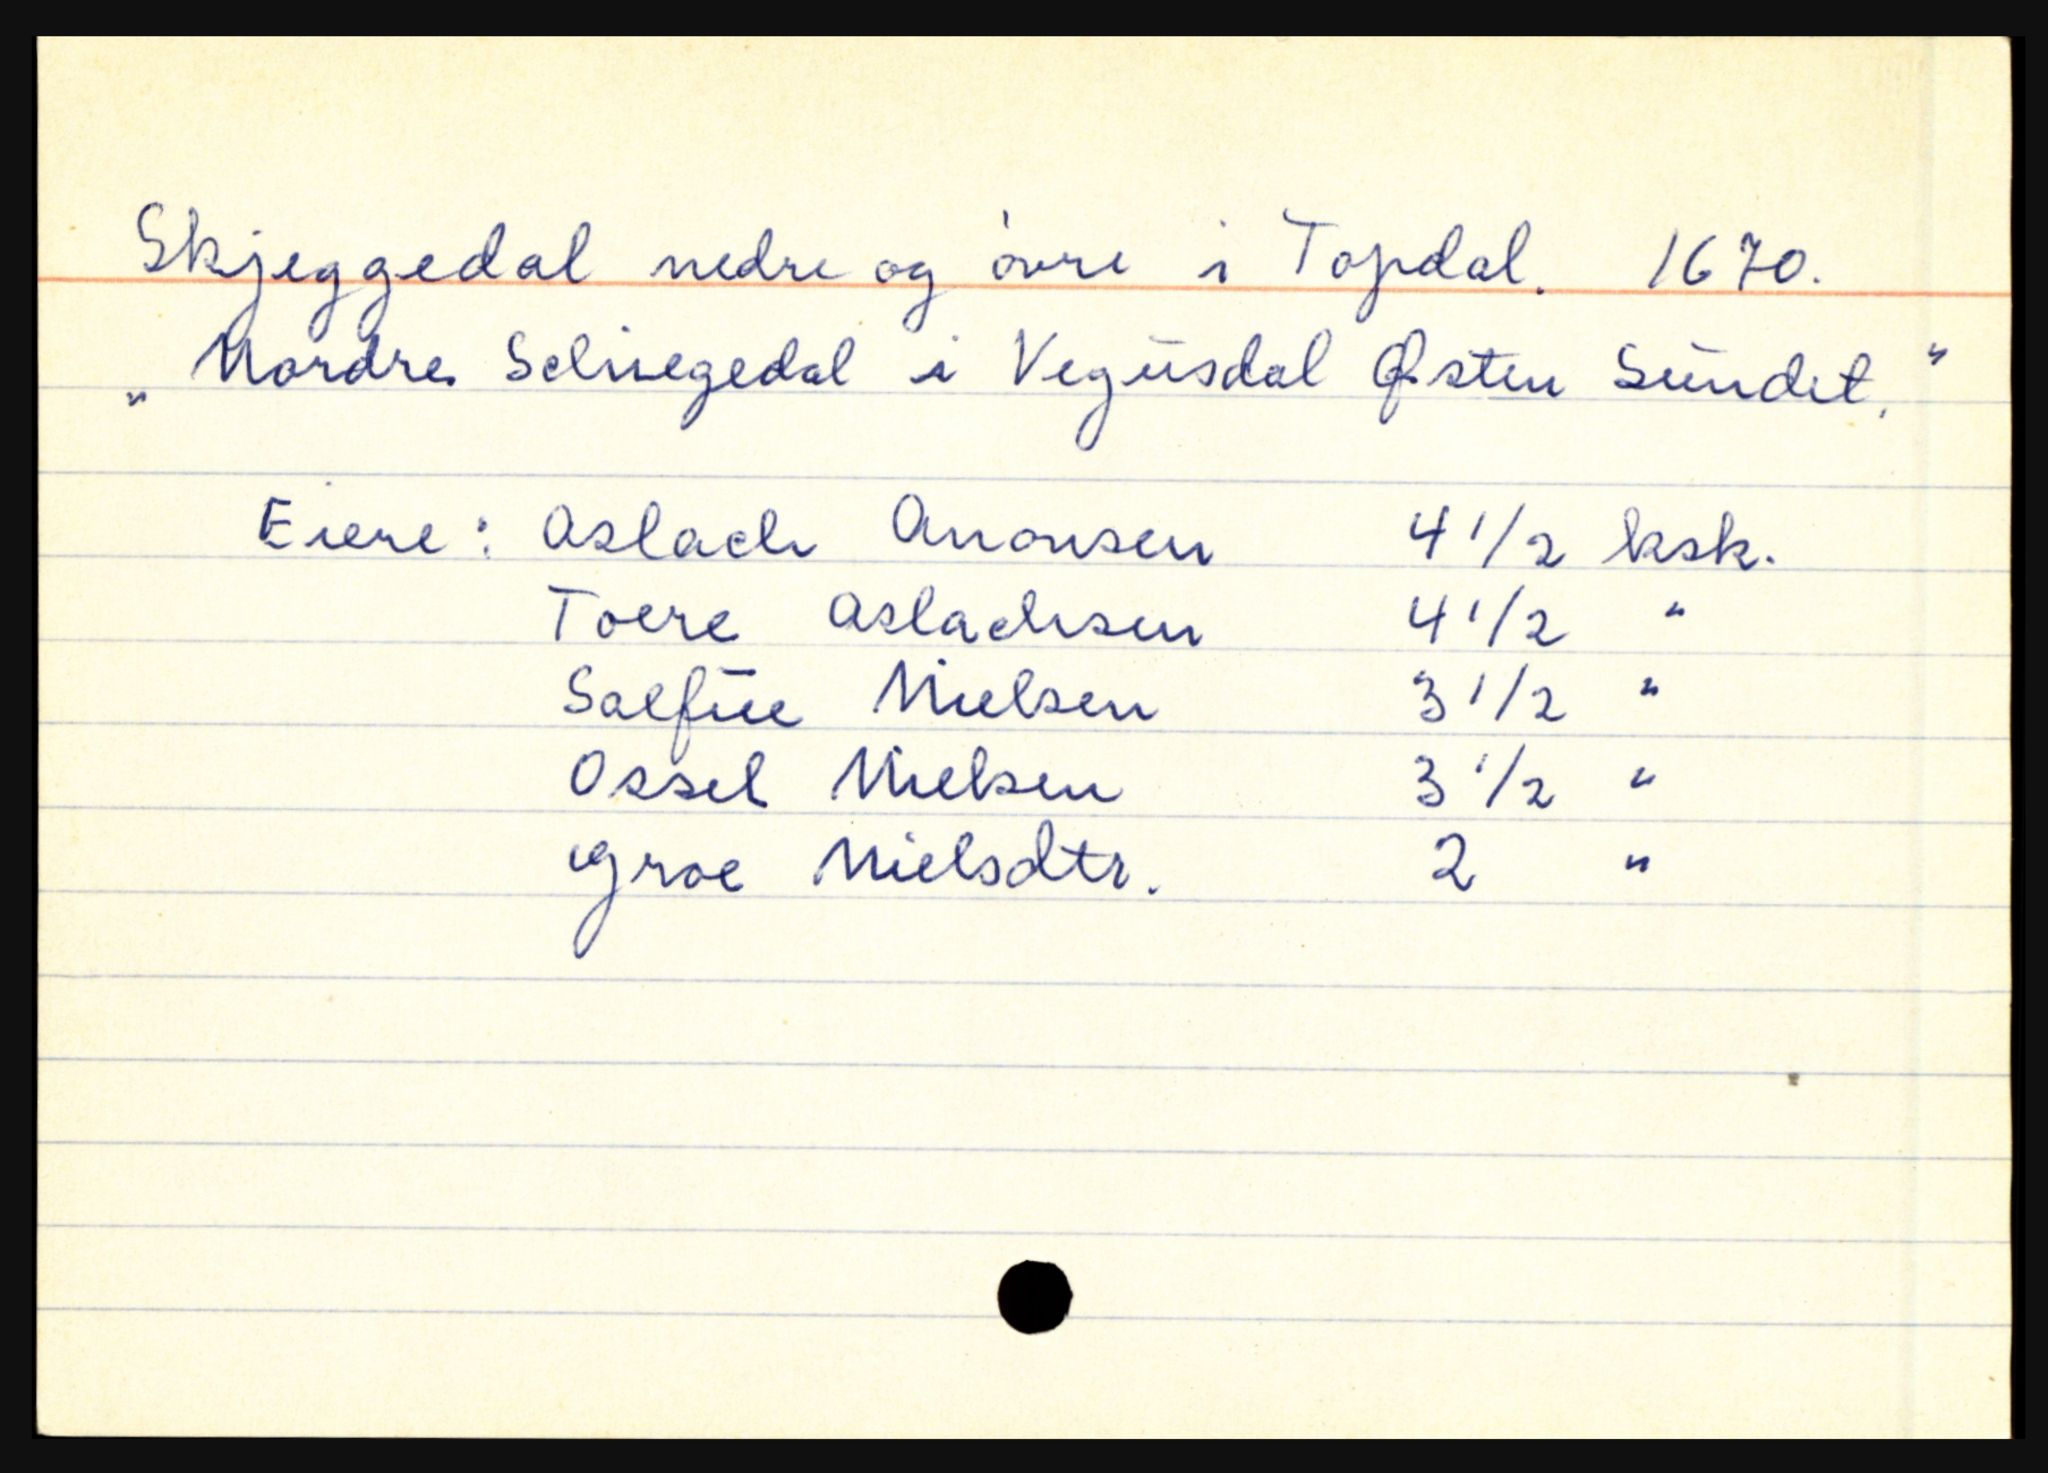 Skjeggedal nedre og øvre i Topdal. 1670.
„Nordre Schiegedal i Vegusdal Østen Sundet."
Eiere: Aslach Anonsen 4 1/2 ksk.
Toere Aslachsen 4 1/2 "
Salfue Nielsen 3 1/2 "
Ossel Nielsen 3 1/2 "
Groe Nielsdtr. 2 "